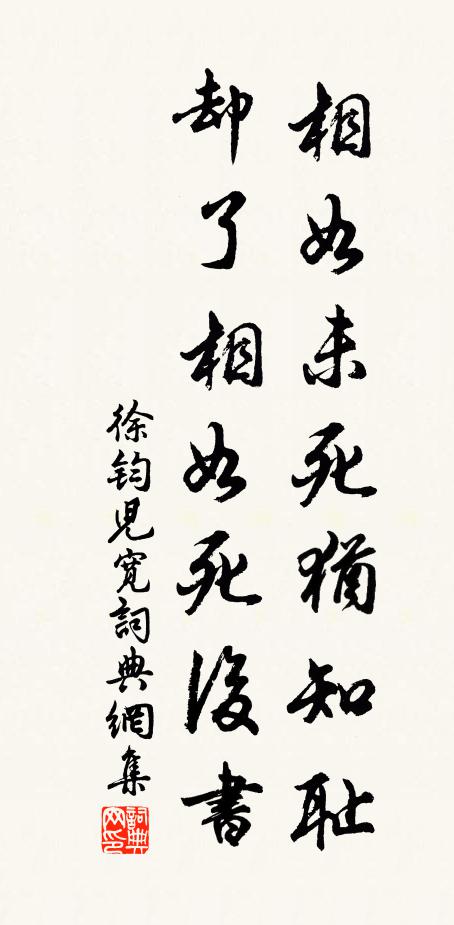 相如未死猶知恥
却了相如死後書
徐鈞兒寬詞典網集
詞典网印